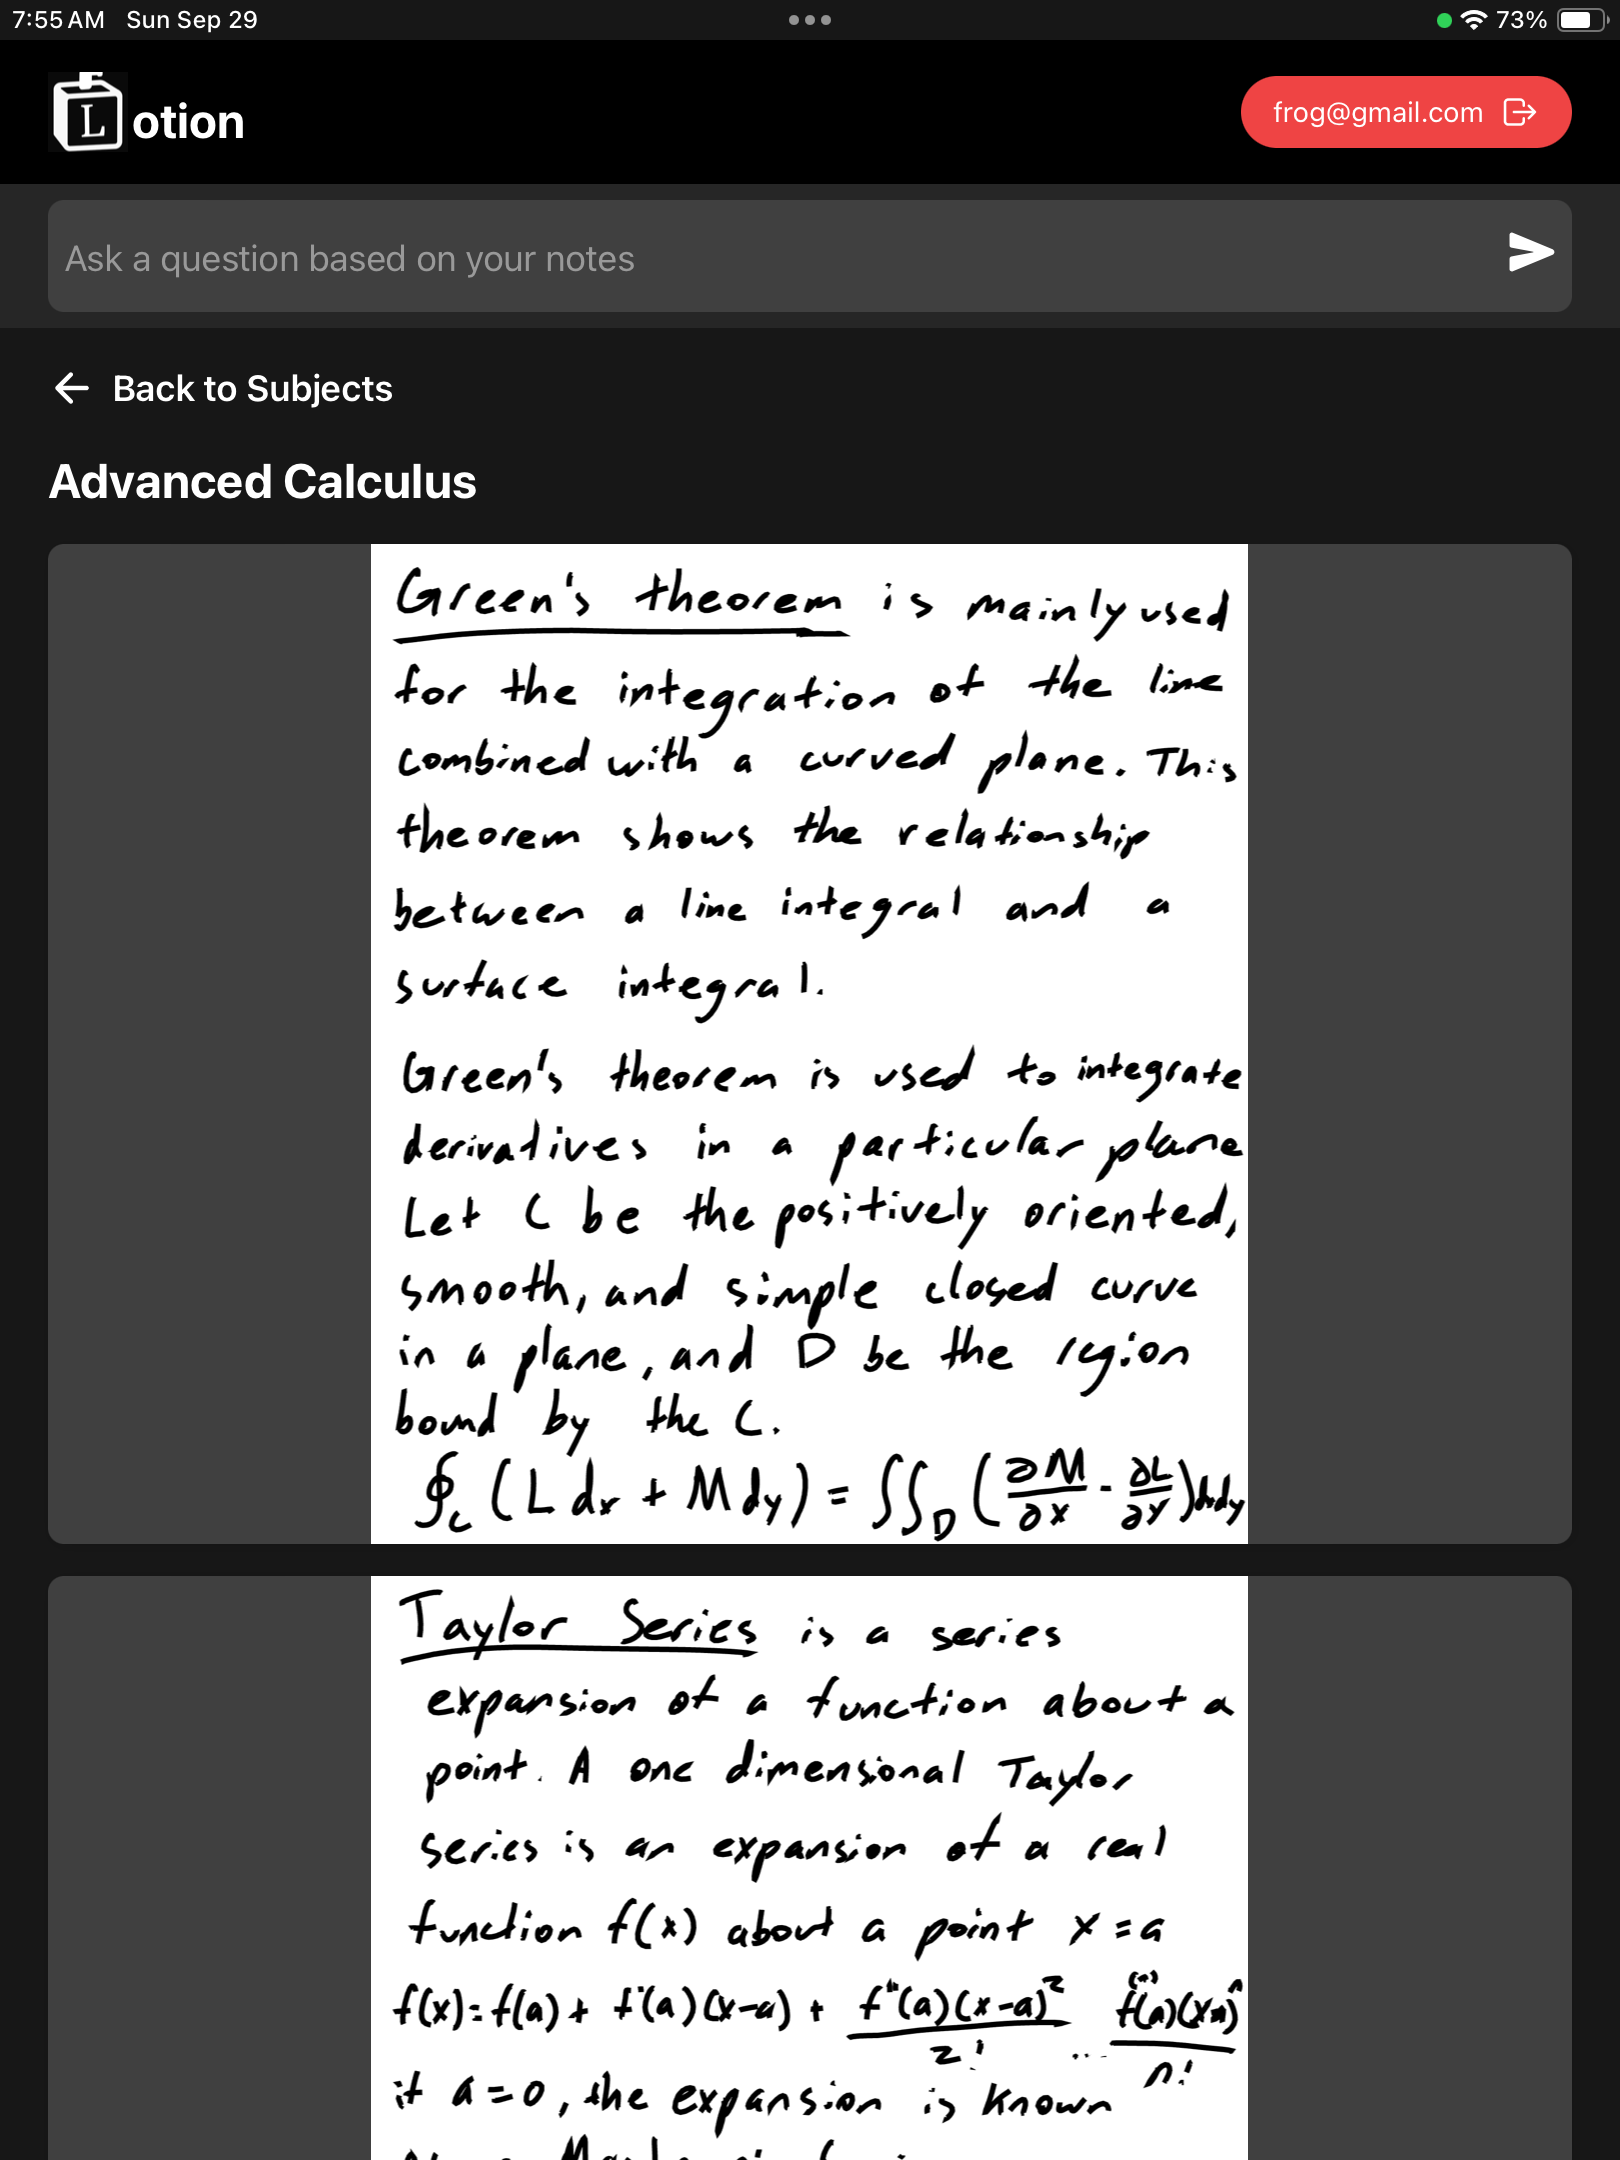 7:55 AM Sun Sep 29
73%
L otion
frog@gmail.com
Ask a question based on your notes
← Back to Subjects
Advanced Calculus
Green's theorem is mainly used
for the integration of the line
combined with a curved plane. This
theorem shows the relationship
between a line integral and a
surface integral.
Green's theorem is used to integrate
derivatives in a particular plane
Let C be the positively oriented,
smooth, and simple closed curve
in a plane, and D be the region
bound by the C.
∮_C (L dx + M dy) = ∬_D (∂M/∂x - ∂L/∂y) dxdy
Taylor Series is a series
expansion of a function about a
point. A one dimensional Taylor
series is an expansion of a real
function f(x) about a point x = a
f(x) = f(a) + f'(a)(x-a) + f''(a)(x-a)²/2! ... f⁽ⁿ⁾(a)(x-a)ⁿ/n!
if a = 0, the expansion is known